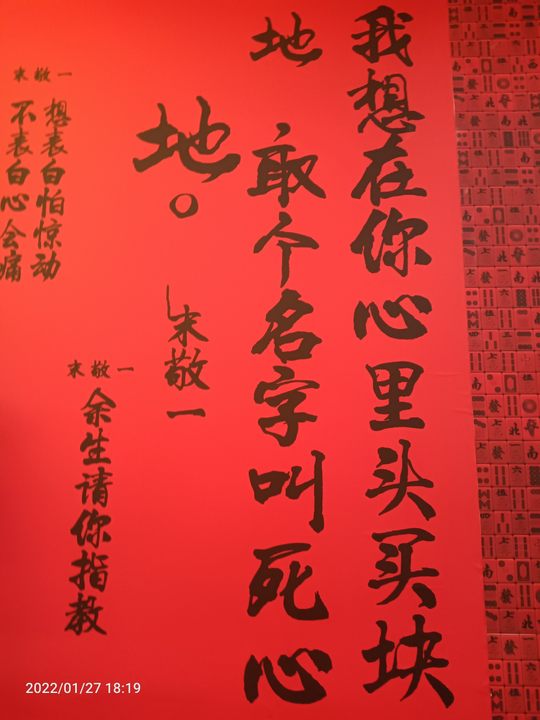 我想在你心里头买块
地 取个名字叫死心
地。
宋敬一
宋敬一
想表白怕惊动
不表白心会痛
宋敬一
余生请你指教
2022/01/27 18:19